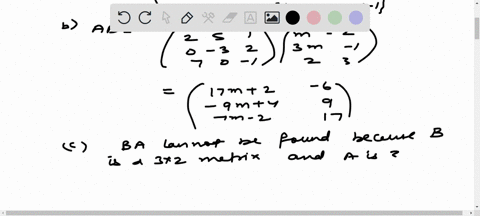 b) AB = ( 2 5 1 ) ( m -2 )
0 -3 2 3m -1
7 0 -1 2 3
= ( 17m+2 -6 )
-9m+4 9
7m-2 17
(c) BA cannot be found because B
is a 3×2 metrix and A is